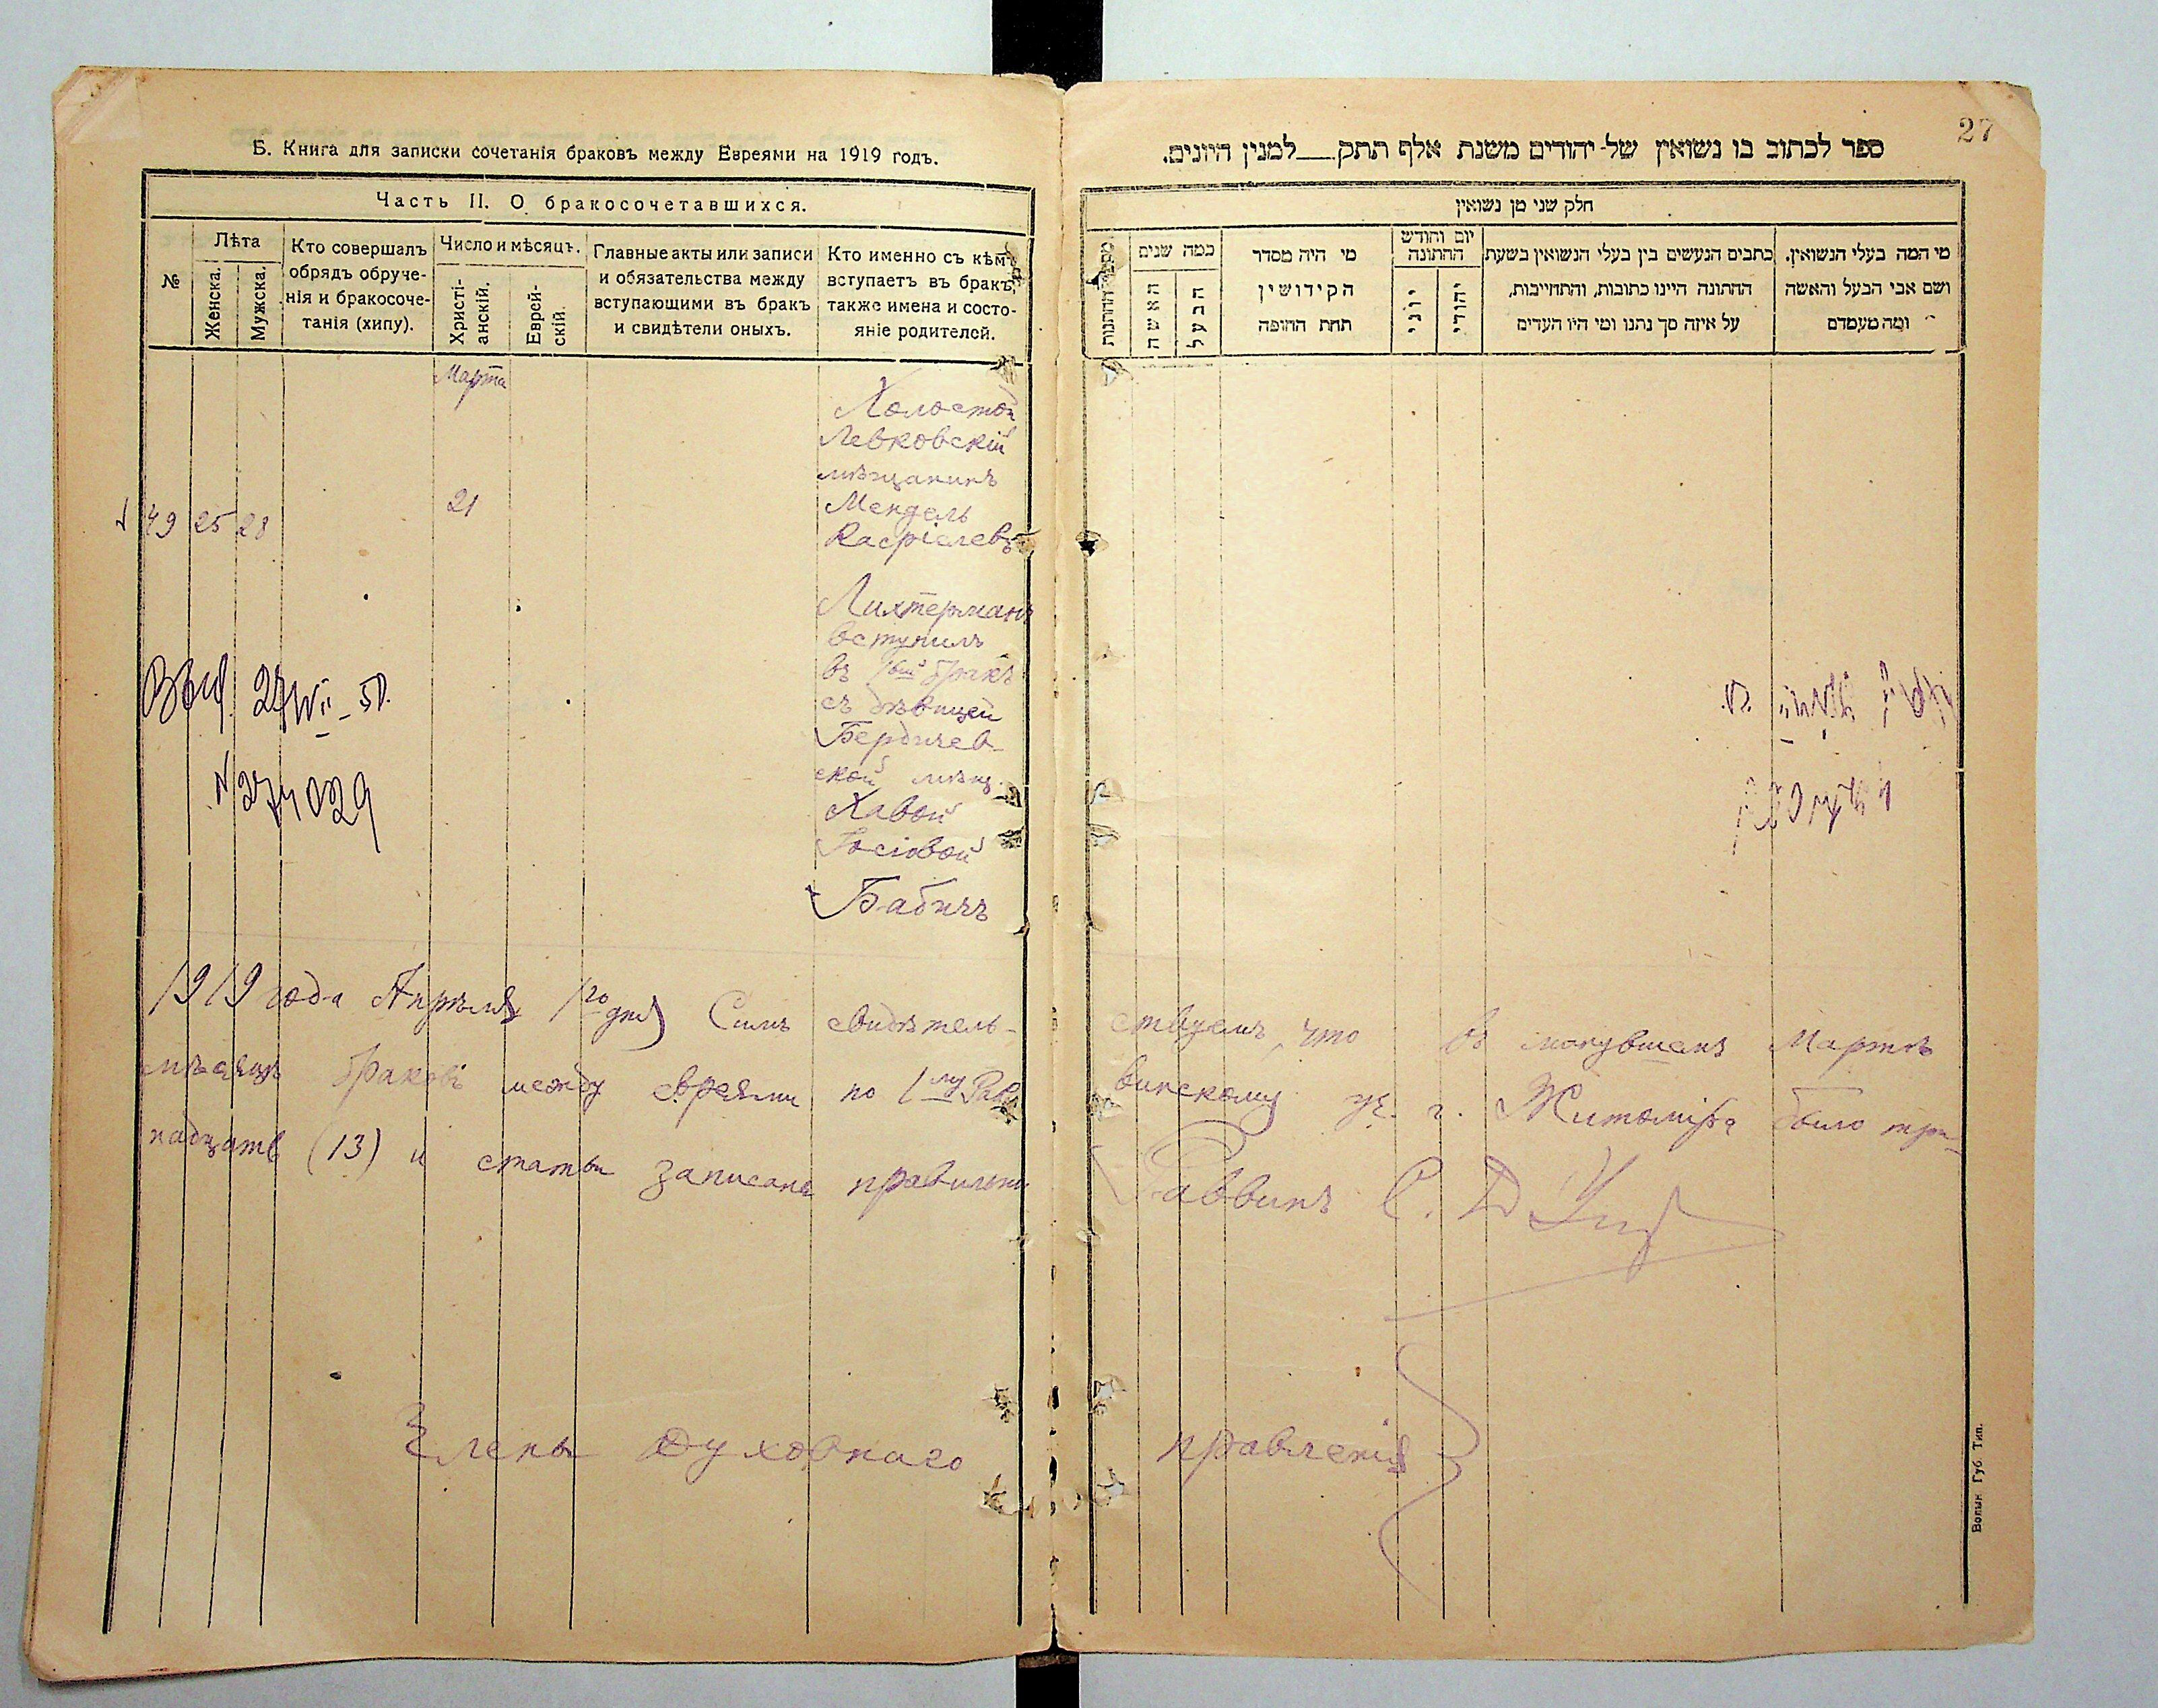 Б. Книга для записки сочетанія браковъ между Евреями на 1919 годъ.
Часть II. О бракосочетавшихся.
№
Лѣта
Женска.
Мужска.
Кто совершалъ
обрядъ обруче-
нія и бракосоче-
танія (хипу).
Число и мѣсяцъ.
Христі-
анскій.
Еврей-
скій.
Главные акты или записи
и обязательства между
вступающими въ бракъ
и свидѣтели оныхъ.
Кто именно съ кѣмъ
вступаетъ въ бракъ,
также имена и состо-
яніе родителей.
Марта
49 25 28
21
Холостой
Левковскій
мѣщанинъ
Мендель
Касріелевъ
Лихтерманъ
вступилъ
въ 1вый бракъ
съ дѣвицей
Бердичев-
ской мѣщ.
Хавой
Іосіовой
Бабичъ
№ 274029
27
ספר לכתוב בו נשואין של יהודים משנת אלף תתק___למנין היונים.
חלק שני מן נשואין
מספר החתנות
כמה שנים
האשה
הבעל
מי היה מסדר
הקידושין
תחת החופה
יום וחודש
החתונה
יוני
יהודי
כתבים הנעשים בין בעלי הנשואין בשעת
החתונה היינו כתובות, והתחייבות,
על איזה סך נתנו ומי היו העדים
מי המה בעלי הנשואין.
ושם אבי הבעל והאשה
ומה מעמדם
1919 года Апрѣля 1го дня Симъ свидѣтель- ствуемъ, что въ минувшемъ Мартѣ
мѣсяцѣ браковъ между евреями по 1му Рав- винскому уч. г. Житоміра было три-
надцать (13) и статьи записаны правильно Раввинъ С. Д.
Члены Духовнаго правленія
Волын. Губ. Тип.